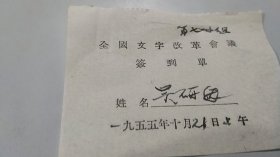 第七小组
全國文字改革會議
簽到單
姓名 吴研因
一九五五年十月21日上午